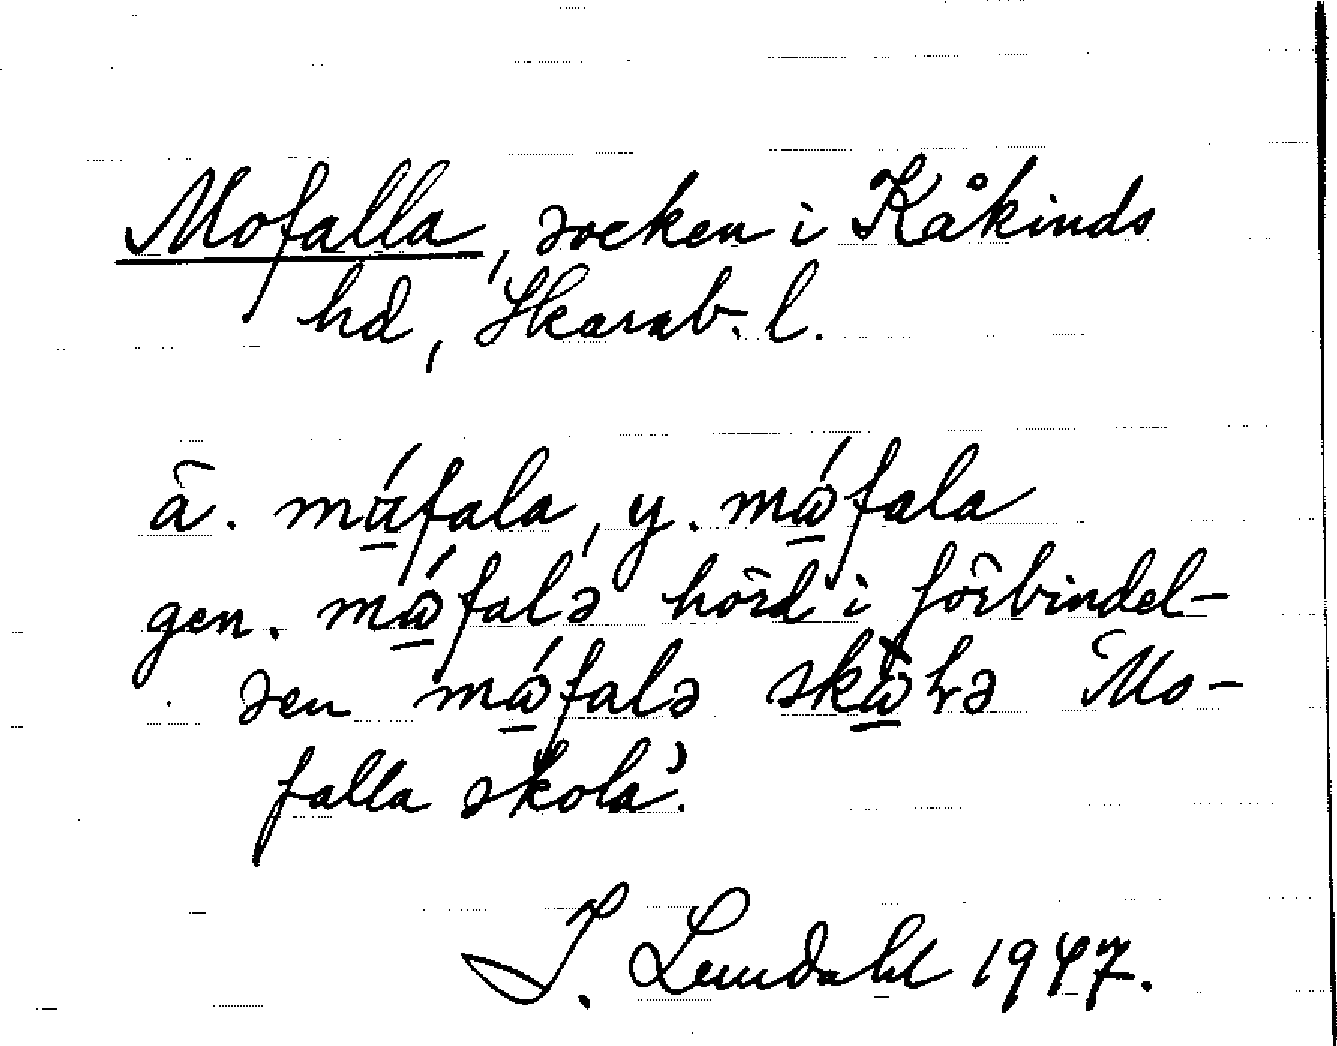 Mofalla, socken i Kåkinds
hd, Skarab. l.
ä. má̱fala, y. mώ̱fala
gen. mώ̱falə hörd i förbindel-
sen mώ̱falə skὼ̱ɫə ʽMo-
falla skolaʼ.
I. Lundahl 1947.